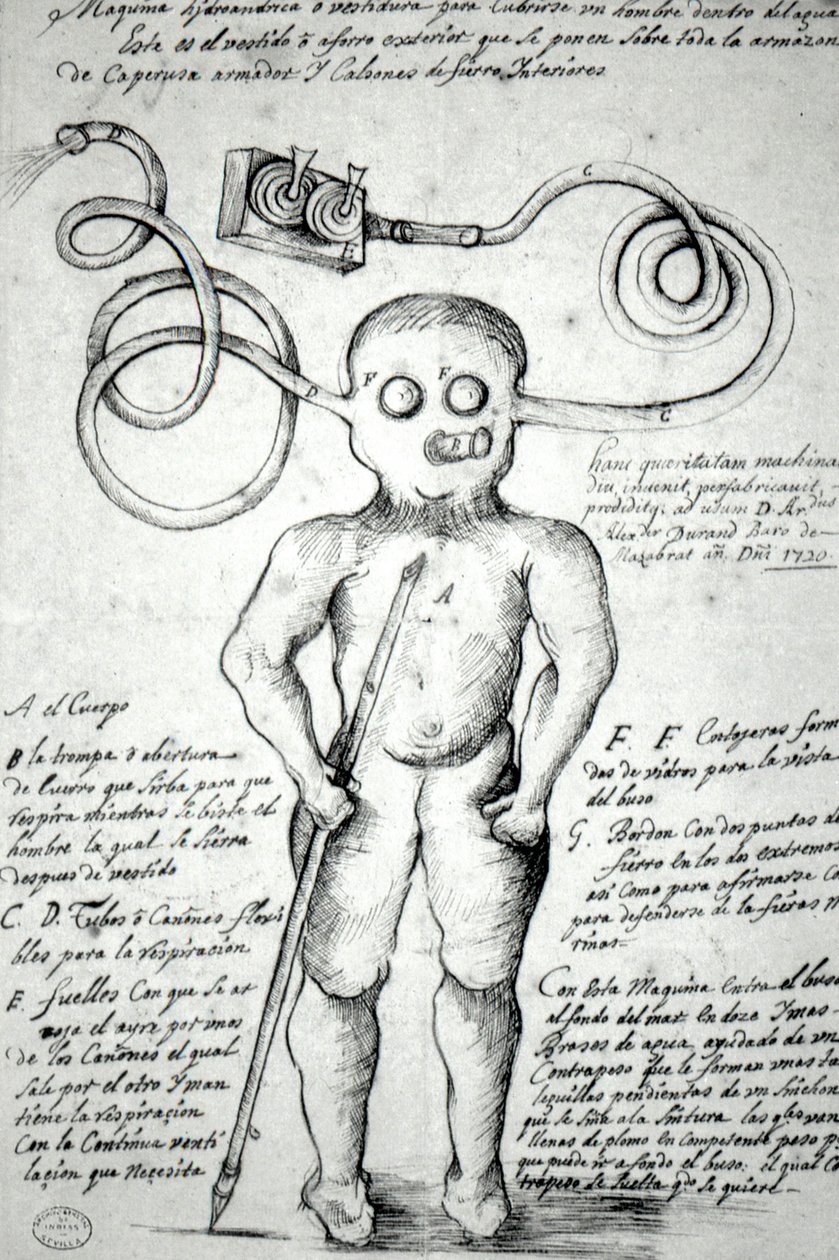 Maquina hidroandrica o vestidura para Cubrirse vn hombre dentro del agua
Este es el vestido ō aforro exterior que se ponen sobre toda la armazon
de Caperusa armador Y Calsones de fierro Ynteriores
D
E
C
F
F
B
D
C
A
hanc machina
diu invenit perfabricauit
prodiditq; ad usum D. Ar.
Alexder Durand Baro de
Mazabrat añ. Dñi 1720
A el Cuerpo
B la trompa ō abertura
de Cuerro que sirba para que
respira mientras se biste el
hombre la qual se sierra
despues de vestido
C. D. Tubos ō Cañones flexi
bles para la respiracion
E. fuelles Con que se ar
roja el ayre por vnos
de los Cañones el qual
sale por el otro Y man
tiene la respiracion
Con la Continua venti
laçion que Neçesita
F. F. Entojeras form
das de vidros para la vista
del buso
G. Bordon Con dos puntas de
fierro En los dos extremos
asi Como para afirmarse Co
para defenderse de la fieras M
rinas
Con Esta Maquina Entra el buso
al fondo del mar En doze Y mas
Brasos de agua ayudado de vn
Contrapeso que le forman vnas ta
leguillas pendientas de vn sinchon
que se siñe a la sintura las qles van
llenas de plomo En Competente peso p
que puede ir a fondo el buso: el qual Co
trapeso se suelta qdo se quiere
ARCHIVO GENERAL
DE
INDIAS
SEVILLA